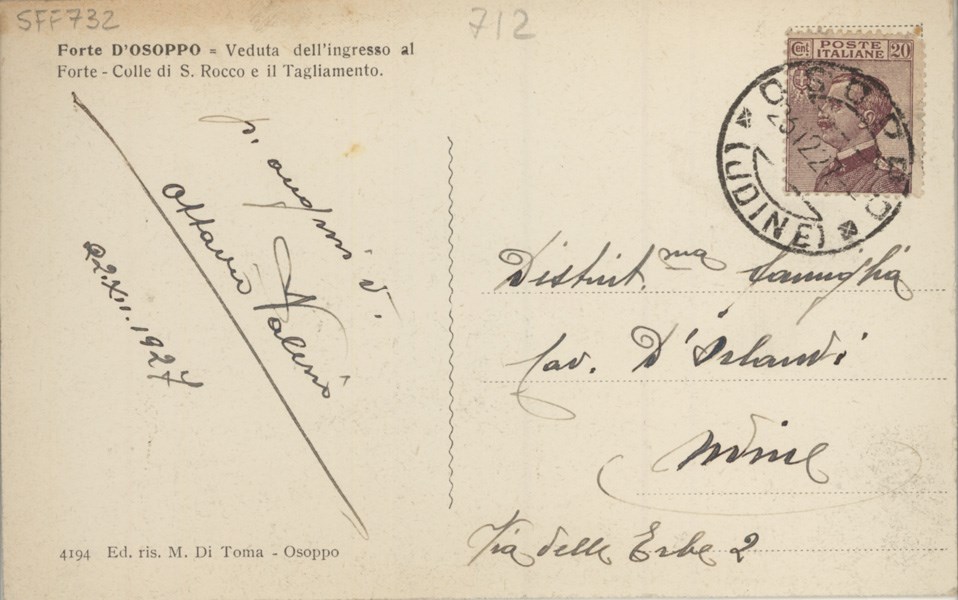 SFF732
712
Forte D'OSOPPO = Veduta dell'ingresso al
Forte - Colle di S. Rocco e il Tagliamento.
Cent. POSTE ITALIANE 20
OSOPPO
(UDINE)
p. auguri
Ottavio Valerio
22.XII.1927
Distint.ma Famiglia
Cav. D'Orlandi
Udine
Via delle Erbe 2
4194 Ed. ris. M. Di Toma - Osoppo